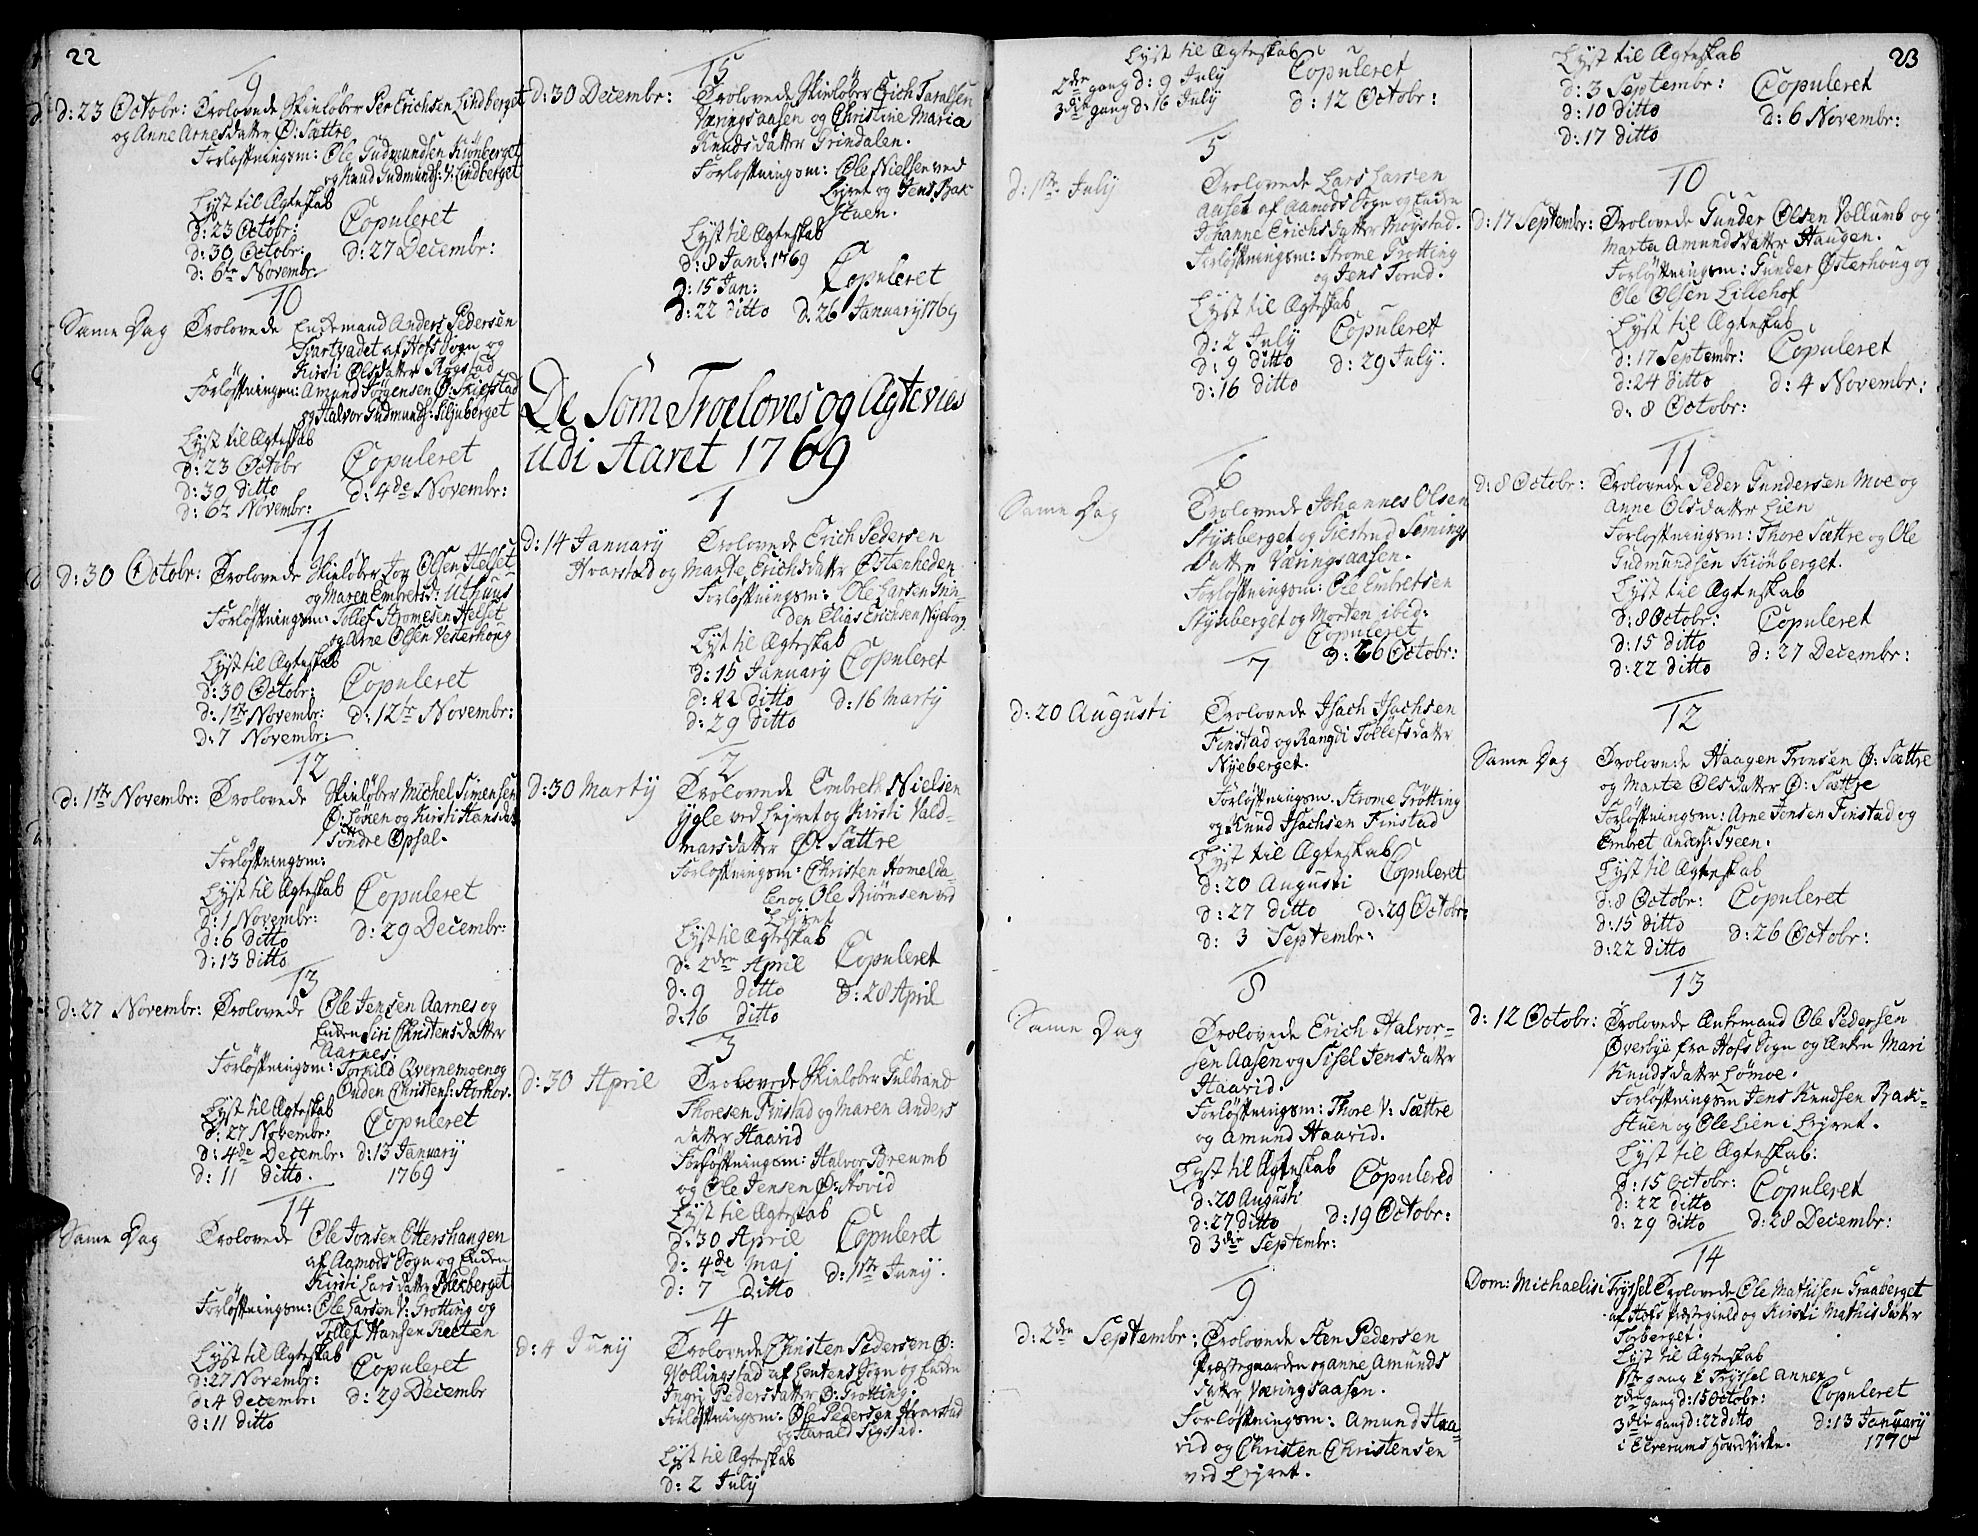 22
9
d: 23 Octobr: Trolovede Skieløber Per Erichsen Lindberget
og Anne Arnesdatter Ø: Sættre
Forløftningsm: Ole Gudmundsen Kiønberget
og Knud Gudmunds: V: Lindberget
Lyst til Ægteskab
d: 23 Octobr: Copuleret
d: 30 Octobr: d: 27 Decembr:
d: 6te Novembr
10
Same Dag Trolovede Enckemand Anders Pedersen
Svartvadet af Hofs Sogn og
Kirsti Olsdatter Rogstad
Forløftningsm: Amund Jørgensen Ø: Kiefstad
og Halvor Gudmunds: Siljuberget
Lyst til Ægteskab
d: 23 Octobr Copuleret
d: 30 ditto d: 4de Novembr:
d: 6te Novembr:
11
d: 30 Octobr: Trolovede Skieløber Joe Olsen Helset
og Maren Embretsd: Uthuus
Forløftningsm: Tollef Stromesen Helset
og Arne Olsen Vesterhoug
Lyst til Ægteskab
d: 30 Octobr: Copuleret
d: 1ste Novembr: d: 12te Novembr:
d: 7 Novembr:
12
d: 1ste Novembr: Trolovede Skieløber Michel Simensen
Ø: Løken og Kirsti Hansdat
Søndre Opsal.
Forløftningsm:
Lyst til Ægteskab Copuleret
d: 1 Novembr:
d: 6 ditto d: 29 Decembr:
d: 13 ditto
13
d: 27 Novembr: Trolovede Ole Jensen Aarnes og
Enken Siri Christensdatter
Aarnes.
Forløftningsm: Torkild Qvernemoen og
Ouden Christens: Storhov.
Lyst til Ægteskab
d: 27 Novembr: Copuleret
d: 4de Decembr: d: 13 January
d: 11 ditto. 1769
14
Same Dag Trolovede Ole Jonsen Ottershaugen
af Aamods Sogn og Enken
Kirsti Larsdatter
Forløftningsm: Ole Larsen V: Grotting og
Tollef Hansen Reeten
Lyst til Ægteskab
d: 27 Novembr: Copuleret
d: 4 decembr: d: 29 Decembr
d: 11 ditto
15
d: 30 Decembr: Trolovede Skieløber Erich Taralsen
Væringsaasen og Christine Maria
Knudsdatter Grindalen.
Forløftningsm: Ole Nielsen ved
Lejret og Jens Bak-
stuen.
Lyst til Ægteskab
d: 8 Jan: 1769
d: 15 Jan: Copuleret
d: 22 ditto d. 26 January 1769
De Som Troeloves og Ægtevies
udi Aaret 1769
1
d: 14 January Trolovede Erich Pedersen
Hvarstad og Marte Erichsdatter Østenheden
Forløftningsm: Ole Larsen Grin-
den Elias Erichsen Nyeborg
Lyst til Ægteskab
d: 15 January Copuleret
d: 22 ditto d: 16 Martij
d: 29 ditto
2
d: 30 Martij Trolovede Embreth Nielsen
Ygle ved Lejret og Kirsti Vald-
marsdatter Ø: Sættre
Forløftningsm: Christen Homelda-
len og Ole Biørnsen ved
Lejret
Lyst til Ægteskab
d: 2den April Copuleret
d: 9 ditto d: 28 April
d: 16 ditto
3
d: 30 April Trolovede Skieløber Gulbrand
Thoresen Finstad og Maren Anders
datter Haarid
Forløftningsm: Halvor Breumb
og Ole Jensen Ø: Hovid
Lyst til Ægteskab
d: 30 April Copuleret
d: 4de Maj
d: 7 ditto d: 1ste Junij.
4
d: 4 Junij Trolovede Christen Pedersen Ø:
Vollingstad af Lentens Sogn og Enken
Ingri Pedersdatter Ø: Grotting.
Forløftningsm: Ole Pedersen Hvarstad
og Harald Sigstad.
Lyst til Ægteskab
d: 2 July
Lyst til Ægteskab
2den gang d: 9 July Copuleret
3die gang d: 16 July d: 12 Octobr:
5
d: 1ste July Trolovede Lars Larsen
Aaset af Aamods Sogn og Enken
Johanne Erichsdatter Mogstad.
Forløftningsm: Strome Grotting
og Jens Torud.
Lyst til Ægteskab
d: 2 July Copuleret
d: 9 ditto d: 29 July.
d: 16 ditto
6
Same Dag Trolovede Johannes Olsen
Styuberget og Giertrud Sømings
Datter Væringsaasen.
Forløftningsm: Ole Embretsen
Styuberget og Morten ibid:
Copuleret
d: 26 Octobr:
7
d: 20 Augusti Trolovede Isach Isachsen
Finstad og Rangdi Tollefsdatter
Nyeberget.
Forløftningsm. Strome Grøtting
og Knud Isachsen Finstad
Lyst til Ægteskab
d: 20 Augusti Copuleret
d: 27 ditto d: 29 Octobr:
d: 3 Septembr:
8
Same Dag Trolovede Erich Halvor-
sen Aasen og Sisel Jensdatter
Haarid.
Forløftningsm: Thore V: Sættre
og Amund Haarid.
Lyst til Ægteskab Copulered
d: 20 Augusti
d: 27 ditto d: 19 Octobr:
d 3die Septembr:
9
d: 2den Septembr: Trolovede Sten Pedersen
Præstegaarden og Anne Amunds
datter Væringsaasen.
Forløftningsm: Amund Haa-
vid og Christen Christensen
ved Lejret.
23
Lyst til Ægteskab
d: 3 Septembr: Copuleret
d: 10 ditto d: 6 Novembr:
d: 17 ditto
10
d: 17 Septembr: Trolovede Gunder Olsen Vollumb og
Marta Amundsdatter Haugen.
Forløftningsm: Gunder Østerhoug og
Ole Olsen Lillehof
Lyst til Ægteskab
d: 17 Septembr: Copuleret
d: 24 ditto d: 4 Novembr:
d: 8 Octobr:
11
d: 8 Octobr: Trolovede Peder Gundersen Moe og
Anne Olsdatter Lien
Forløftningsm: Thore Sættre og Ole
Gudmundsen Kiønberget.
Lyst til Ægteskab
d: 8 Octobr: Copuleret
d: 15 ditto d: 27 Decembr:
d: 22 ditto
12
Same Dag Trolovede Haagen Tronsen Ø: Sættre
og Marte Olsdatter Ø: Sættre
Forløftningsm: Arne Jonsen Finstad og
Embret Anders: Sveen.
Lyst til Ægteskab
d: 8 Octobr: Copuleret
d: 15 ditto d: 26 Octobr:
d: 22 ditto
13
d: 12 Octobr: Trolovede Enkemand Ole Pedersen
Øverbye fra Hofs Sogn og Enken Mari
Knudsdatter Lømoe.
Forløftningsm Jens Knudsen Bak-
stuen og Ole Lien i Lejret.
Lyst til Ægteskab:
d: 15 Octobr: Copuleret
d: 22 ditto
d: 29 ditto d: 28 Decembr:
14
Dom: Michaelis i Tryssel Trolovede Ole Mathisen Graaberget
af Hofs præstegield og Kirsti Mathisdatter
Torberget.
Lyst til Ægteskab
1ste gang i Tryssel Annex
2den gang d: 15 Octobr: Copuleret
3die gang d: 22 ditto d: 13 January
i Elverums Hovedkirke. 1770